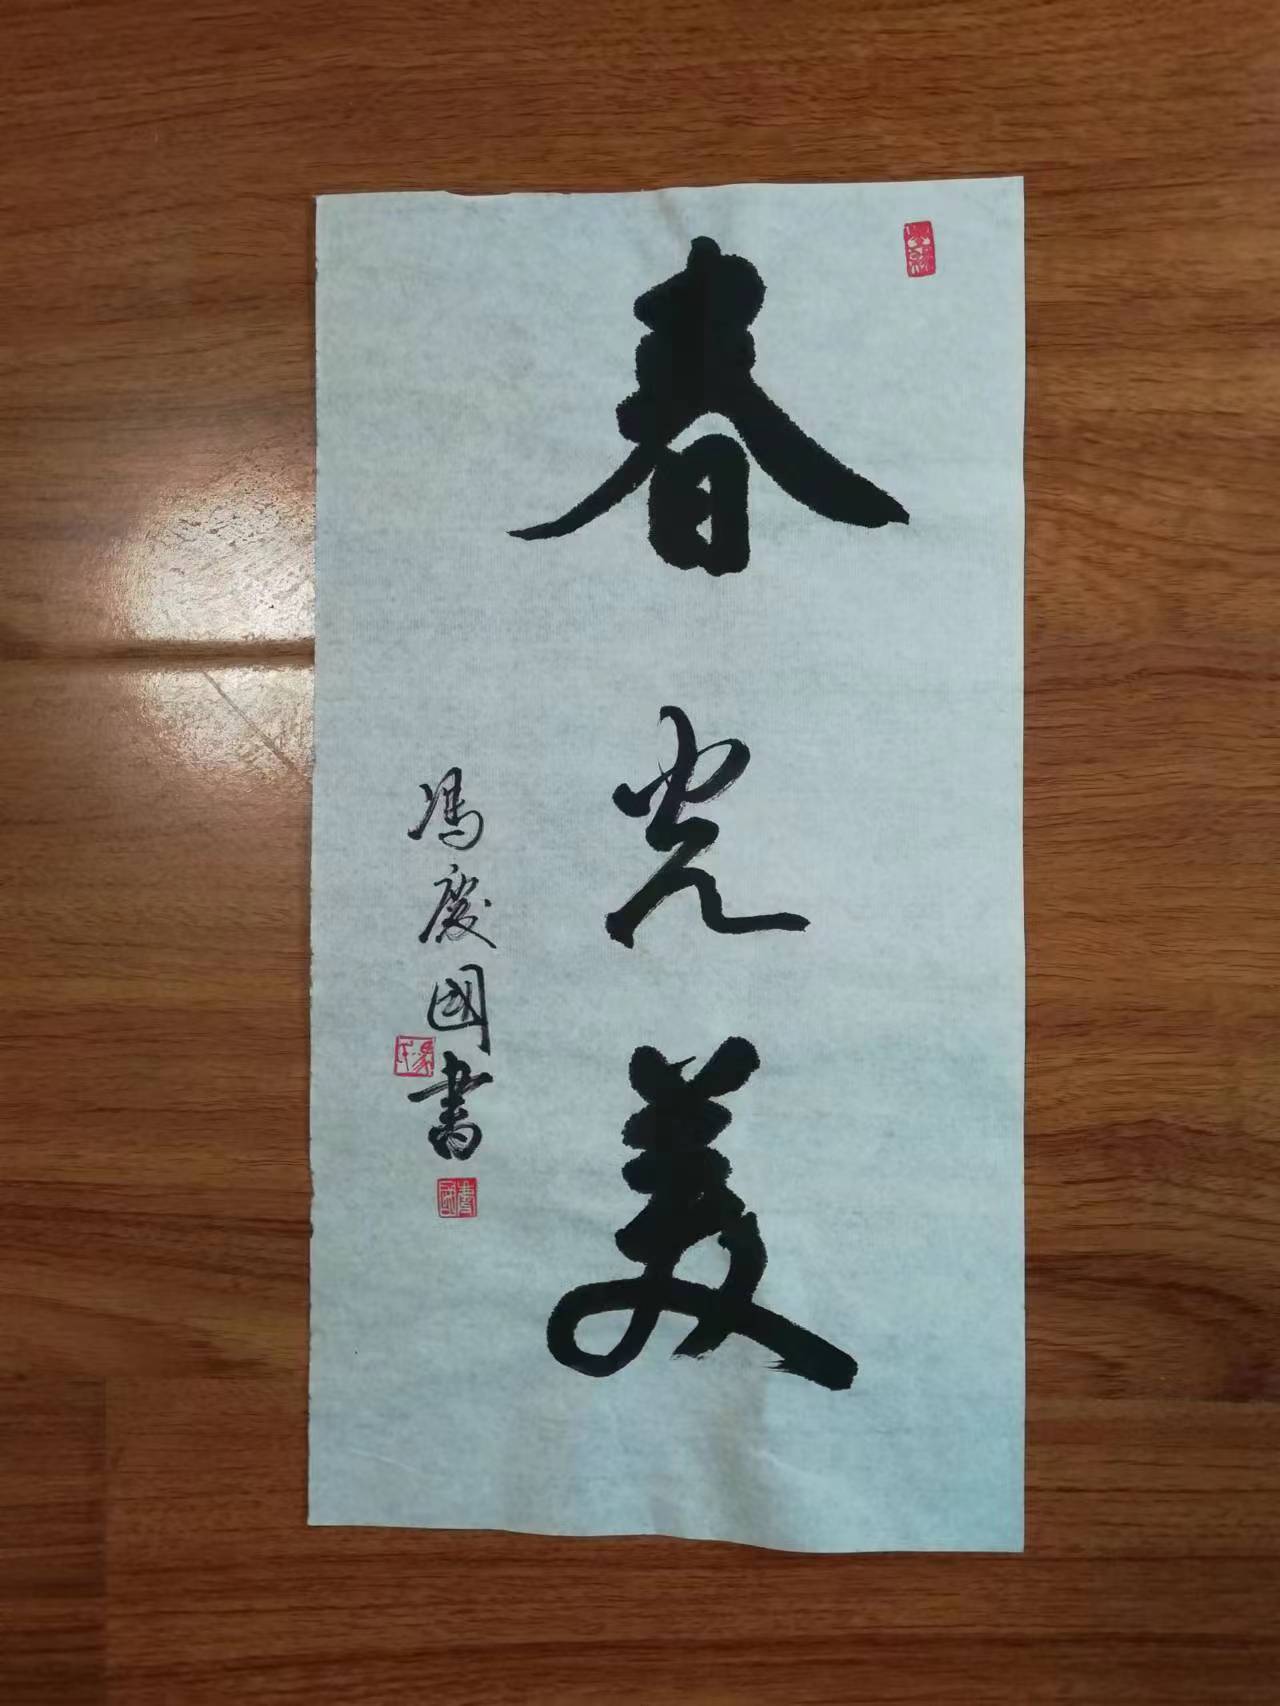 春光美
馮慶國書